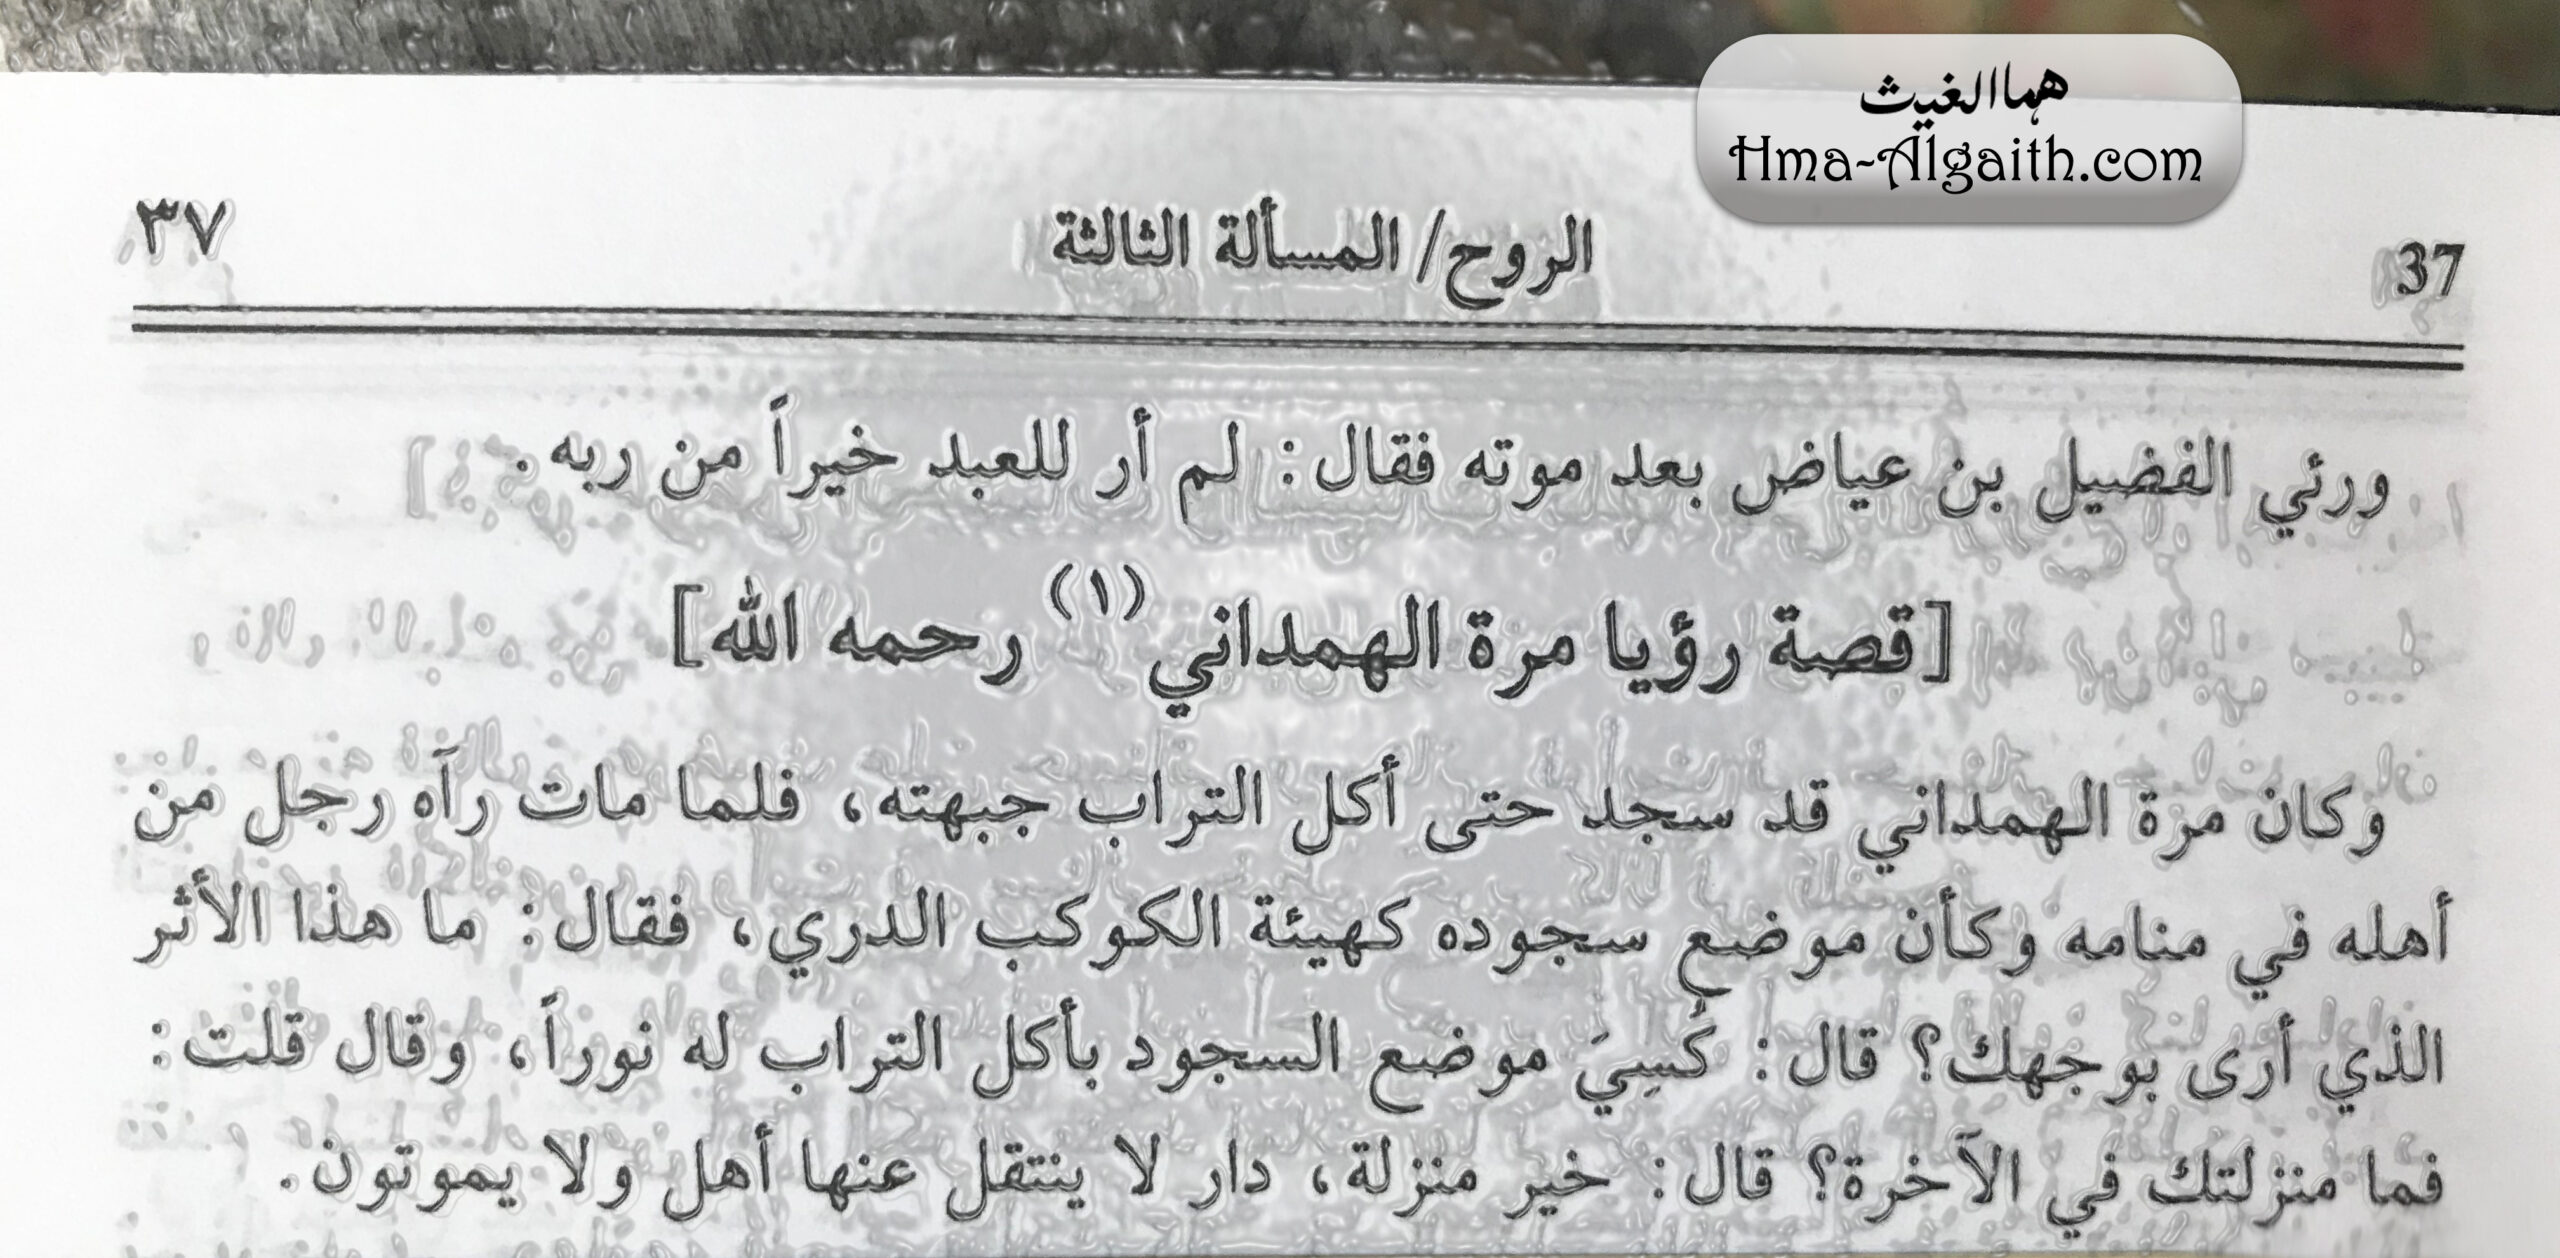 هما الغيث
Hma-Algaith.com
37 الروح/ المسألة الثالثة ٣٧
ورئي الفضيل بن عياض بعد موته فقال: لم أر للعبد خيراً من ربه.
[قصة رؤيا مرة الهمداني(١) رحمه الله]
وكان مرة الهمداني قد سجد حتى أكل التراب جبهته، فلما مات رآه رجل من
أهله في منامه وكأن موضع سجوده كهيئة الكوكب الدري، فقال: ما هذا الأثر
الذي أرى بوجهك؟ قال: كُسِيَ موضع السجود بأكل التراب له نوراً، وقال قلت:
فما منزلتك في الآخرة؟ قال: خير منزلة، دار لا ينتقل عنها أهل ولا يموتون.